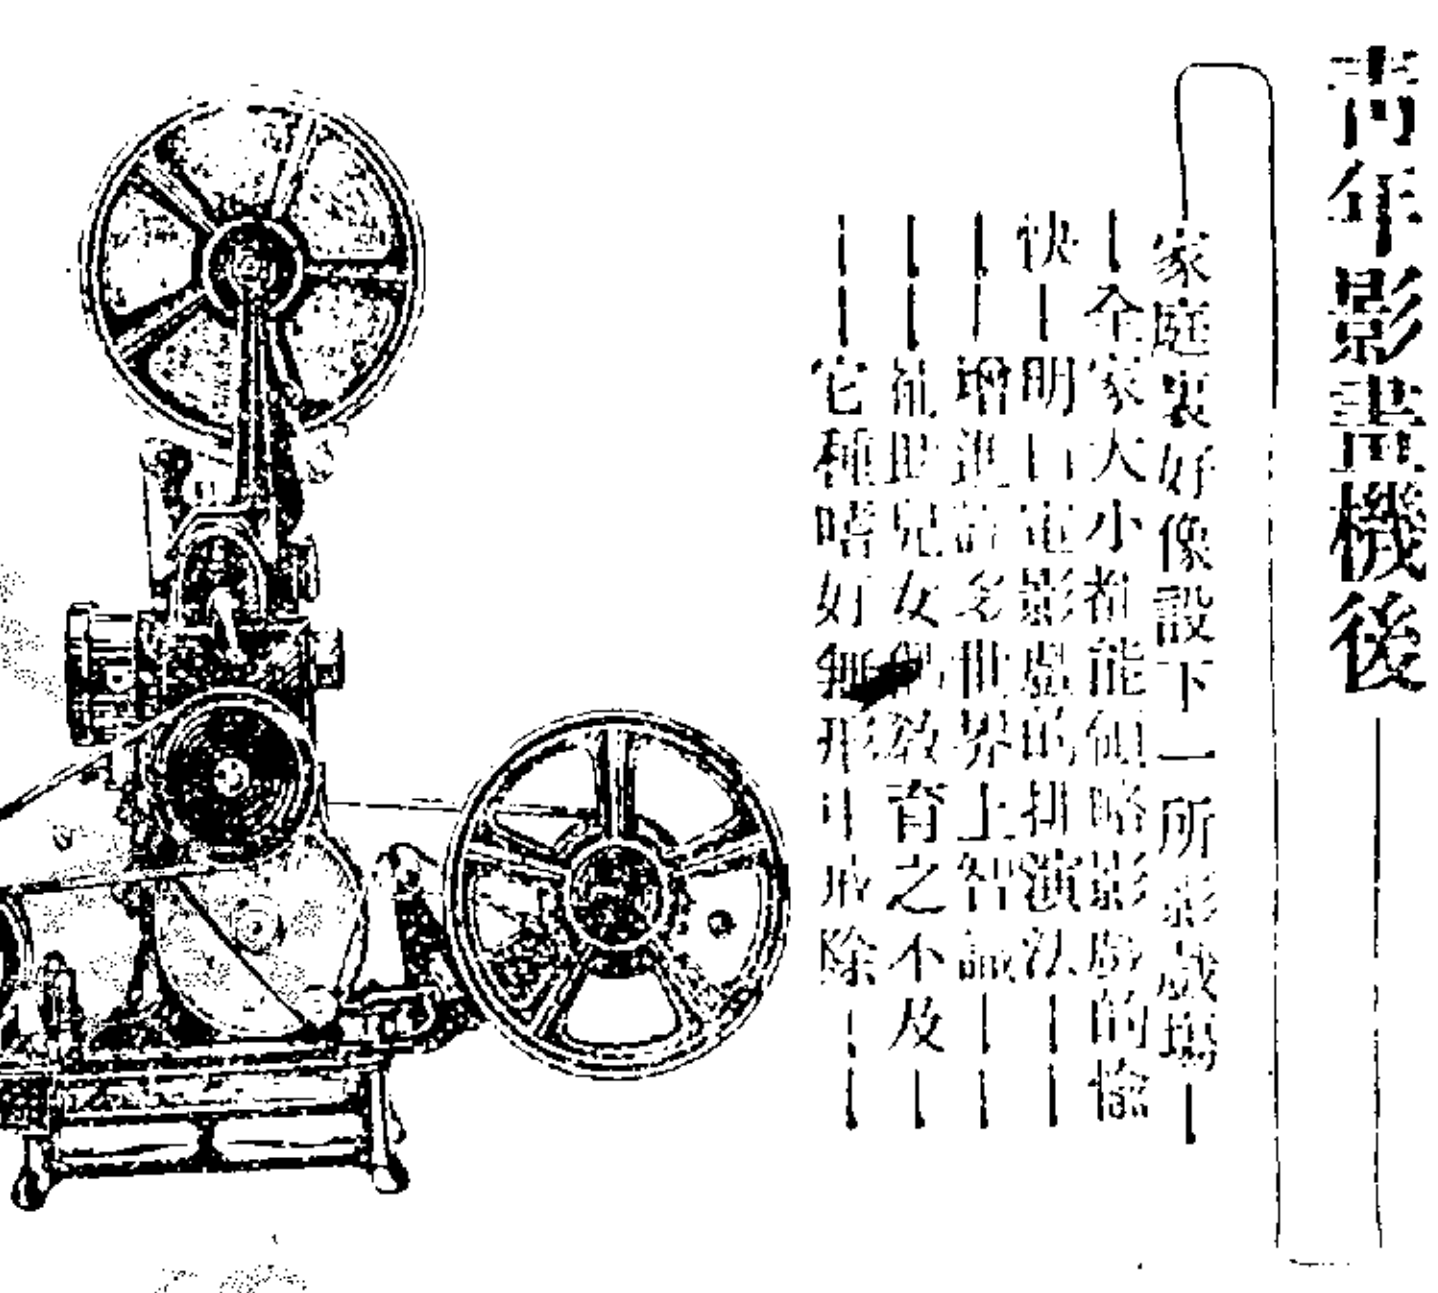 青年影畫機後
家庭裏好像設下一所影戲場—
—全家大小都能領略影戲的愉
快—明白電影戲的扮演法——
——增進許多世界上智識——
——補助兒女們教育之不及—
——它種嗜好無形中戒除——